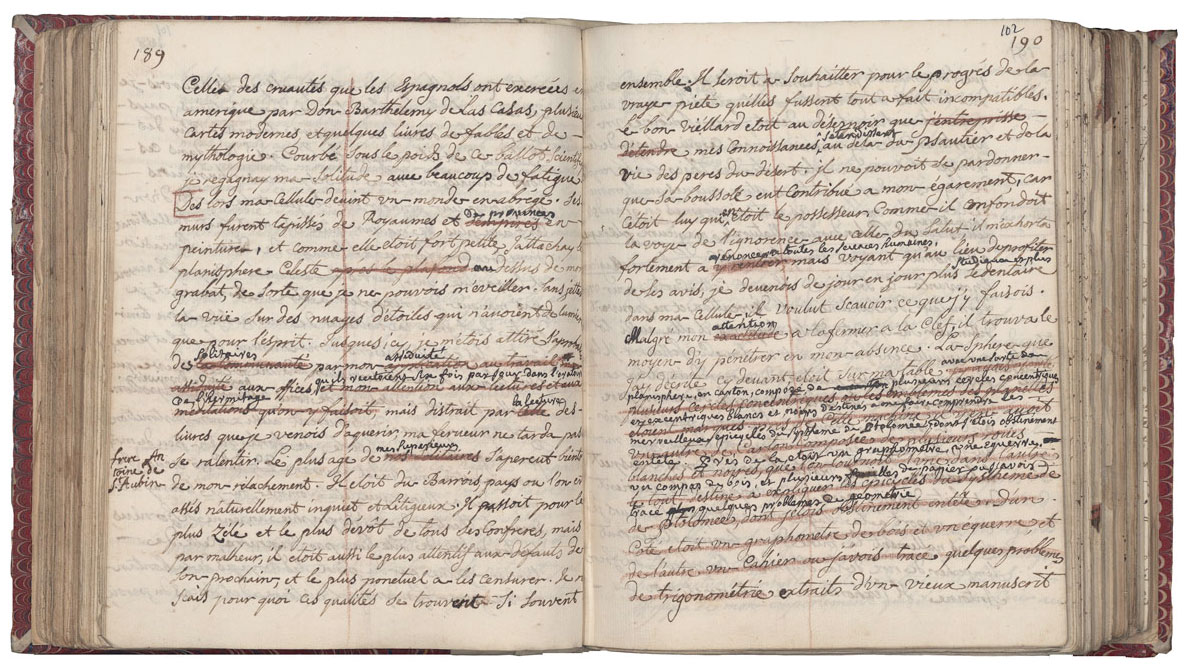 189
Celles des cruautés que les Espagnols ont exercées en
amerique par Don Barthelemy de las Casas, plusieu
Cartes modernes et quelques livres de fables et de
mythologie. Courbé sous le poids de ce ballot scientif
je regagnay ma Solitude avec beaucoup de fatigue
Des lors ma Cellule devint un monde en abrégé. Ses
des provinces
murs furent tapissés de Royaumes et d'empires en
peinture, et comme elle etoit fort petite j'attachay le
planisphere Celeste après le plafond au dessus de mon
grabat, de sorte que je ne pouvois m'eveiller sans jetter
la vüe sur des nuages d'étoiles qui n'avoient de lumie
que pour l'esprit. Jusques icy je m'étois attiré l'approb
solitaires assiduité
de la Communauté par mon
aux offices qu'ils recitoient six fois par jour dans l'oratoire
de l'hermitage mon attention aux lectures et aux
la lecture
meditations qu'on y faisoit, mais distrait par celle des
livres que je venois d'aquerir ma ferveur ne tarda pas
mes superieurs
se ralentir. Le plus agé de s'aperçut bientô
frere An
toine de
St Aubin
de mon relachement. Il etoit du Barrois pays ou l'on est
assés naturellement inquet et Litigieux. Il passoit pour le
plus Zelé et le plus devot de tous ses Confreres, mais
par malheur, il etoit aussi le plus attentif aux defauts de
son prochain, et le plus ponctuel a les censurer. Je ne
scais pour quoi ces qualités se trouvent si souvent
102
190
ensemble. Il seroit a souhaitter pour le progrés de la
vraye pieté qu'elles fussent tout a fait incompatibles.
Le bon vieillard etoit au desespoir que j'entreprisse
s'etendissent
d'étendre mes Connoissances au dela du Psautier et de la
vie des peres du desert. il ne pouvoit se pardonner
que sa boussole eut Contribué a mon égarement, Car
C'étoit luy qui en etoit le possesseur. Comme il confondoit
la voye de l'ignorence avec celle du Salut il m'exhorta
renoncer a toutes les sciences humaines,
fortement a mais voyant qu'au lieu de profiter
studieux et plus
de ses avis, je devenois de jour en jour plus sedentaire
dans ma Cellule il voulut scavoir ce que j'y faisois.
attention
Malgré mon exactitude a la fermer a la Clef, il trouva le
moyen d'y pénétrer en mon absence. La sphere que
j'ay décrite cy devant etoit sur ma table avec une sorte de
planisphere, en carton, composé de plusieurs cercles concentriques
et excentriques blancs et noirs destinés a me faire comprendre les
merveilleux epicycles du systeme de Ptolomée, dont j'etois obstinement
entêté. Près de la etoit un graphometre, une equerre,
un compas de bois, et plusieurs du papier ou j'avois
tracé quelques problemes de géométrie
de Ptolomée dont j'étois obstinement entêté. d'un
Coté etoit un graphometre de bois et une equerre, et
de l'autre un Cahier ou j'avois tracé quelques problemes
de trigonométrie extraits d'un vieux manuscrit